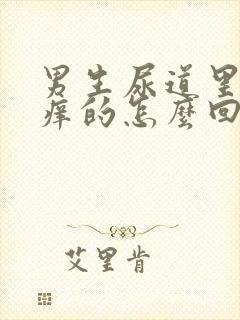 男生尿道里
痒的怎麼回
艾里肯